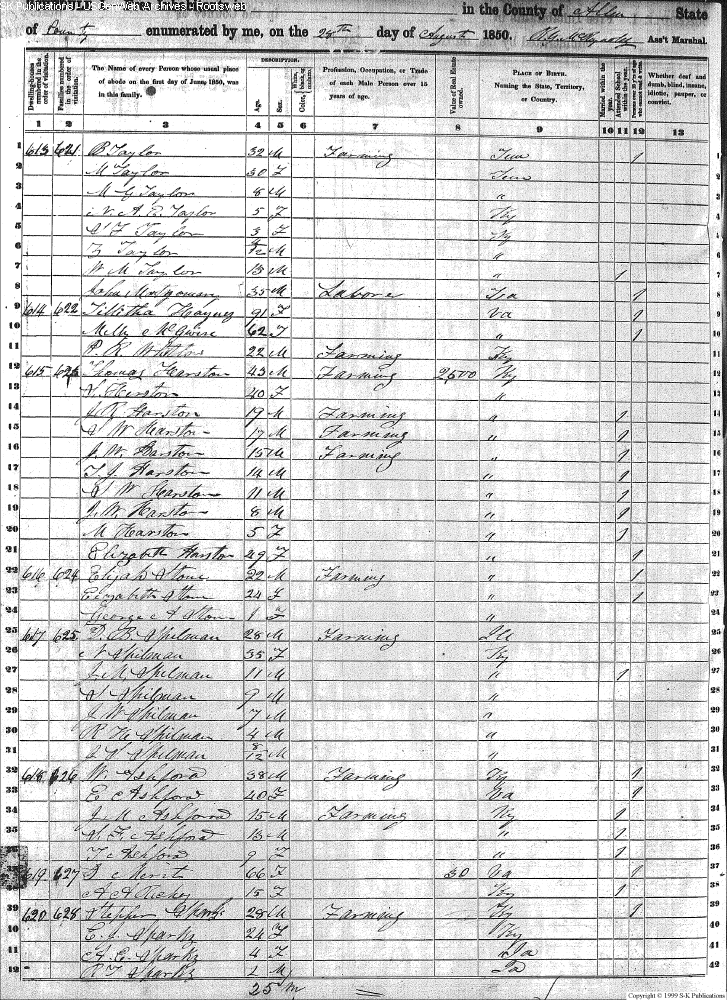 S-K Publications - US GenWeb Archives - Rootsweb
in the County of Allen State
of enumerated by me, on the 28th day of August 1850. Ass't Marshal.
DESCRIPTION.
Dwelling-houses numbered in the order of visitation.
Families numbered in the order of visitation.
The Name of every Person whose usual place of abode on the first day of June, 1850, was in this family.
Age.
Sex.
Color, White, black, or mulatto.
Profession, Occupation, or Trade of each Male Person over 15 years of age.
Value of Real Estate owned.
PLACE OF BIRTH. Naming the State, Territory, or Country.
Married within the year.
Attended School within the year.
Persons over 20 y'rs of age who cannot read & write.
Whether deaf and dumb, blind, insane, idiotic, pauper, or convict.
1 2 3 4 5 6 7 8 9 10 11 12 13
1 613 621 B Taylor 32 M Farming Ten / 1
2 M Taylor 30 F Ten 2
3 M G Taylor 8 M " 3
4 A. E. Taylor 5 F Ky 4
5 F Taylor 3 F Ky 5
6 Taylor M " 6
7 W M Taylor 13 M " / 7
8 John 35 M Labore / 8
9 614 622 Tillitha Haynes 91 F Va / 9
10 Milly McGuire 62 F " / 10
11 P. R. Whitlow 22 M Farming Ky 11
12 615 623 Thomas Harston 43 M Farming 2500 Ky 12
13 Harston 40 F " 13
14 J R Harston 19 M Farming " / 14
15 W Harston 17 M Farming " / 15
16 J. W. Harston 15 M Farming " / 16
17 T J Harston 14 M " / 17
18 W Harston 11 M " / 18
19 J. W. Harston 8 M " / 19
20 M Harston 5 F " / 20
21 Elizabeth Harston 29 F " / 21
22 616 624 Elijah Stone 22 M Farming " / 22
23 Elizabeth Stone 24 F " / 23
24 George A Stone 1 F " 24
25 617 625 D. B. Spilman 28 M Farming Ill 25
26 N Spilman 35 F Ky 26
27 J. N Spilman 11 M " / 27
28 S Spilman 9 M " 28
29 J W Spilman 7 M " 29
30 R H Spilman 4 M " 30
31 Spilman 8/12 M " 31
32 618 626 W. Ashford 38 M Farming Ky / 32
33 E Ashford 40 F Va / 33
34 J. M Ashford 15 M Farming Ky / 34
35 F. Ashford 13 M " / 35
T Ashford 9 F " / 36
619 627 66 F 30 Va / 37
A A 15 F Ky / 38
39 620 628 Stephen Sparks 28 M Farming Ky / 39
40 Sparks 24 F Ky 40
41 E. Sparks 4 F 41
42 Sparks M 42
25 m
Copyright © 1999 S-K Publications